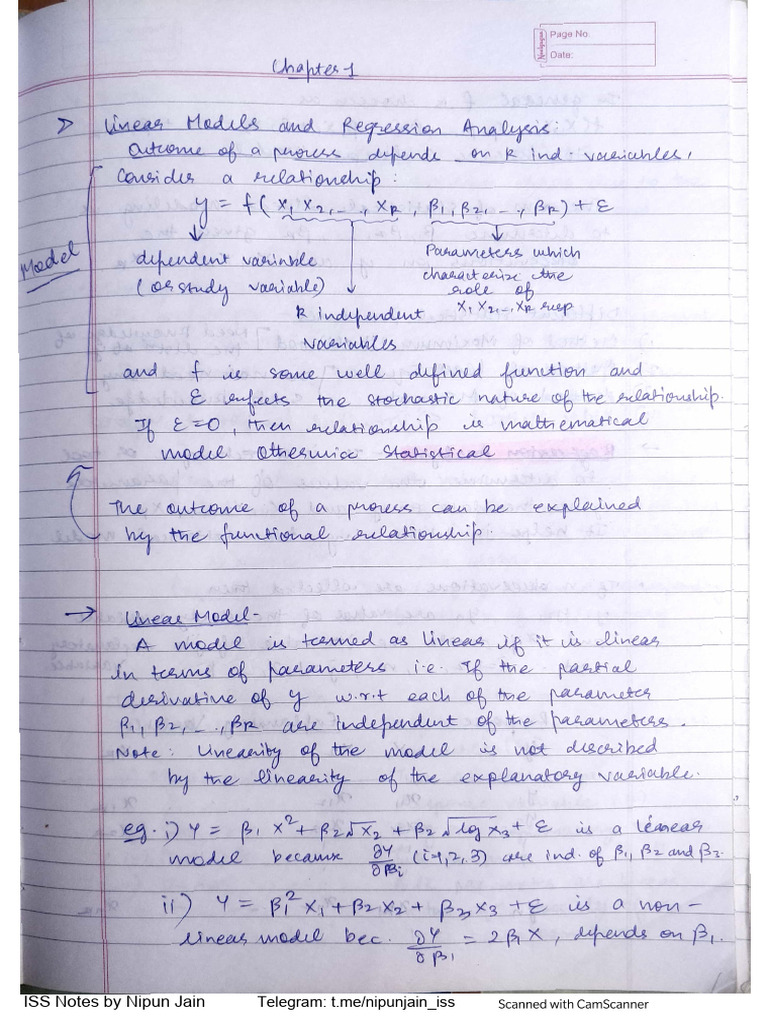 Page No.
Date:
Chapter 1
> Linear Models and Regression Analysis:
Outcome of a process depends on k ind. variables,
Consider a relationship:
y = f( x₁ x₂, ..., xₖ, β₁, β₂, ..., βₖ) + ε
Model
dependent variable
(or study variable)
Parameters which
characterize the
role of
x₁ x₂, ..., xₖ resp
k independent
variables
and f is some well defined function and
ε reflects the stochastic nature of the relationship.
If ε=0, then relationship is mathematical
model otherwise Statistical
The outcome of a process can be explained
by the functional relationship.
→ Linear Model-
A model is termed as linear if it is linear
in terms of parameters i.e. If the partial
derivative of y w.r.t each of the parameter
β₁, β₂, ..., βₖ are independent of the parameters.
Note: Linearity of the model is not described
by the linearity of the explanatory variable.
eg. i) Y = β₁ X² + β₂√x₂ + β₂√log x₃ + ε is a linear
model because ∂Y/∂βi (i=1,2,3) are ind. of β₁, β₂ and β₃.
ii) Y = β₁² X₁ + β₂X₂ + β₃X₃ + ε is a non-
linear model bec. ∂Y/∂β₁ = 2β₁X, depends on β₁.
ISS Notes by Nipun Jain Telegram: t.me/nipunjain_iss Scanned with CamScanner